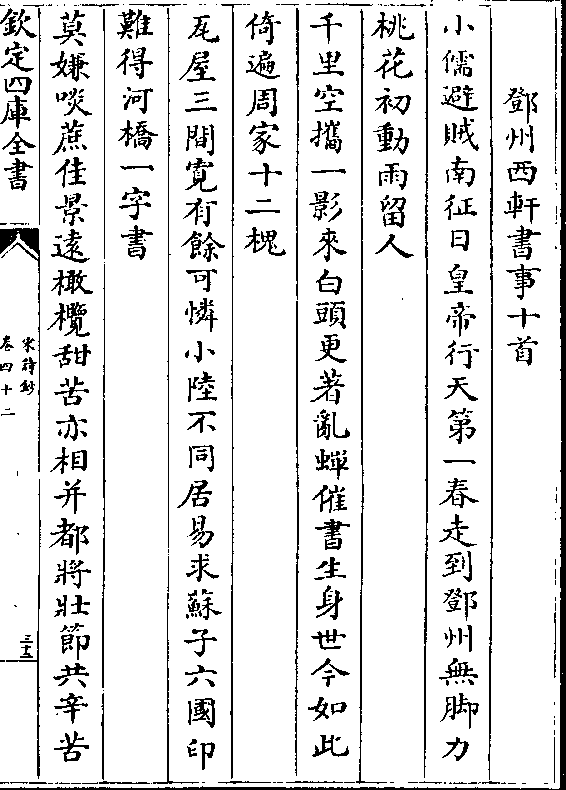 鄧州西軒書事十首
小儒避賊南征日皇帝行天第一春走到鄧州無脚力
桃花初動雨留人
千里空攜一影來白頭更著亂蟬催書生身世今如此
倚遍周家十二槐
瓦屋三間寛有餘可憐小陸不同居易求蘇子六國印
難得河橋一字書
莫嫌啖蔗佳景遠橄欖甜苦亦相并都將壯節共辛苦
欽定四庫全書
宋詩鈔
卷四十二
三十五